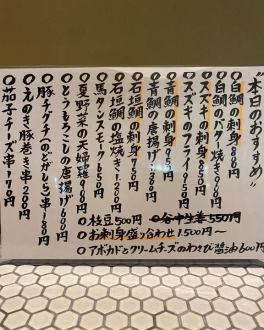 "本日のおすすめ"
○白鯛の刺身
○白鯛のバター焼き
○スズキの刺身
○スズキのフライ 950円
○青鯛の刺身
○青鯛の唐揚げ
○石垣鯛の刺身
○石垣鯛の塩焼き 1,200円
○馬タンステーキ
○夏野菜の天婦羅
○とうもろこしの唐揚げ 600円
○豚チグチ(のどがしら)串 180円
○えのき豚巻き串 200円
○茄子チーズ串 170円
○枝豆 500円
○谷中生姜 550円
○お刺身盛り合わせ 1,500円〜
○アボカドとクリームチーズのわさび醤油 600円